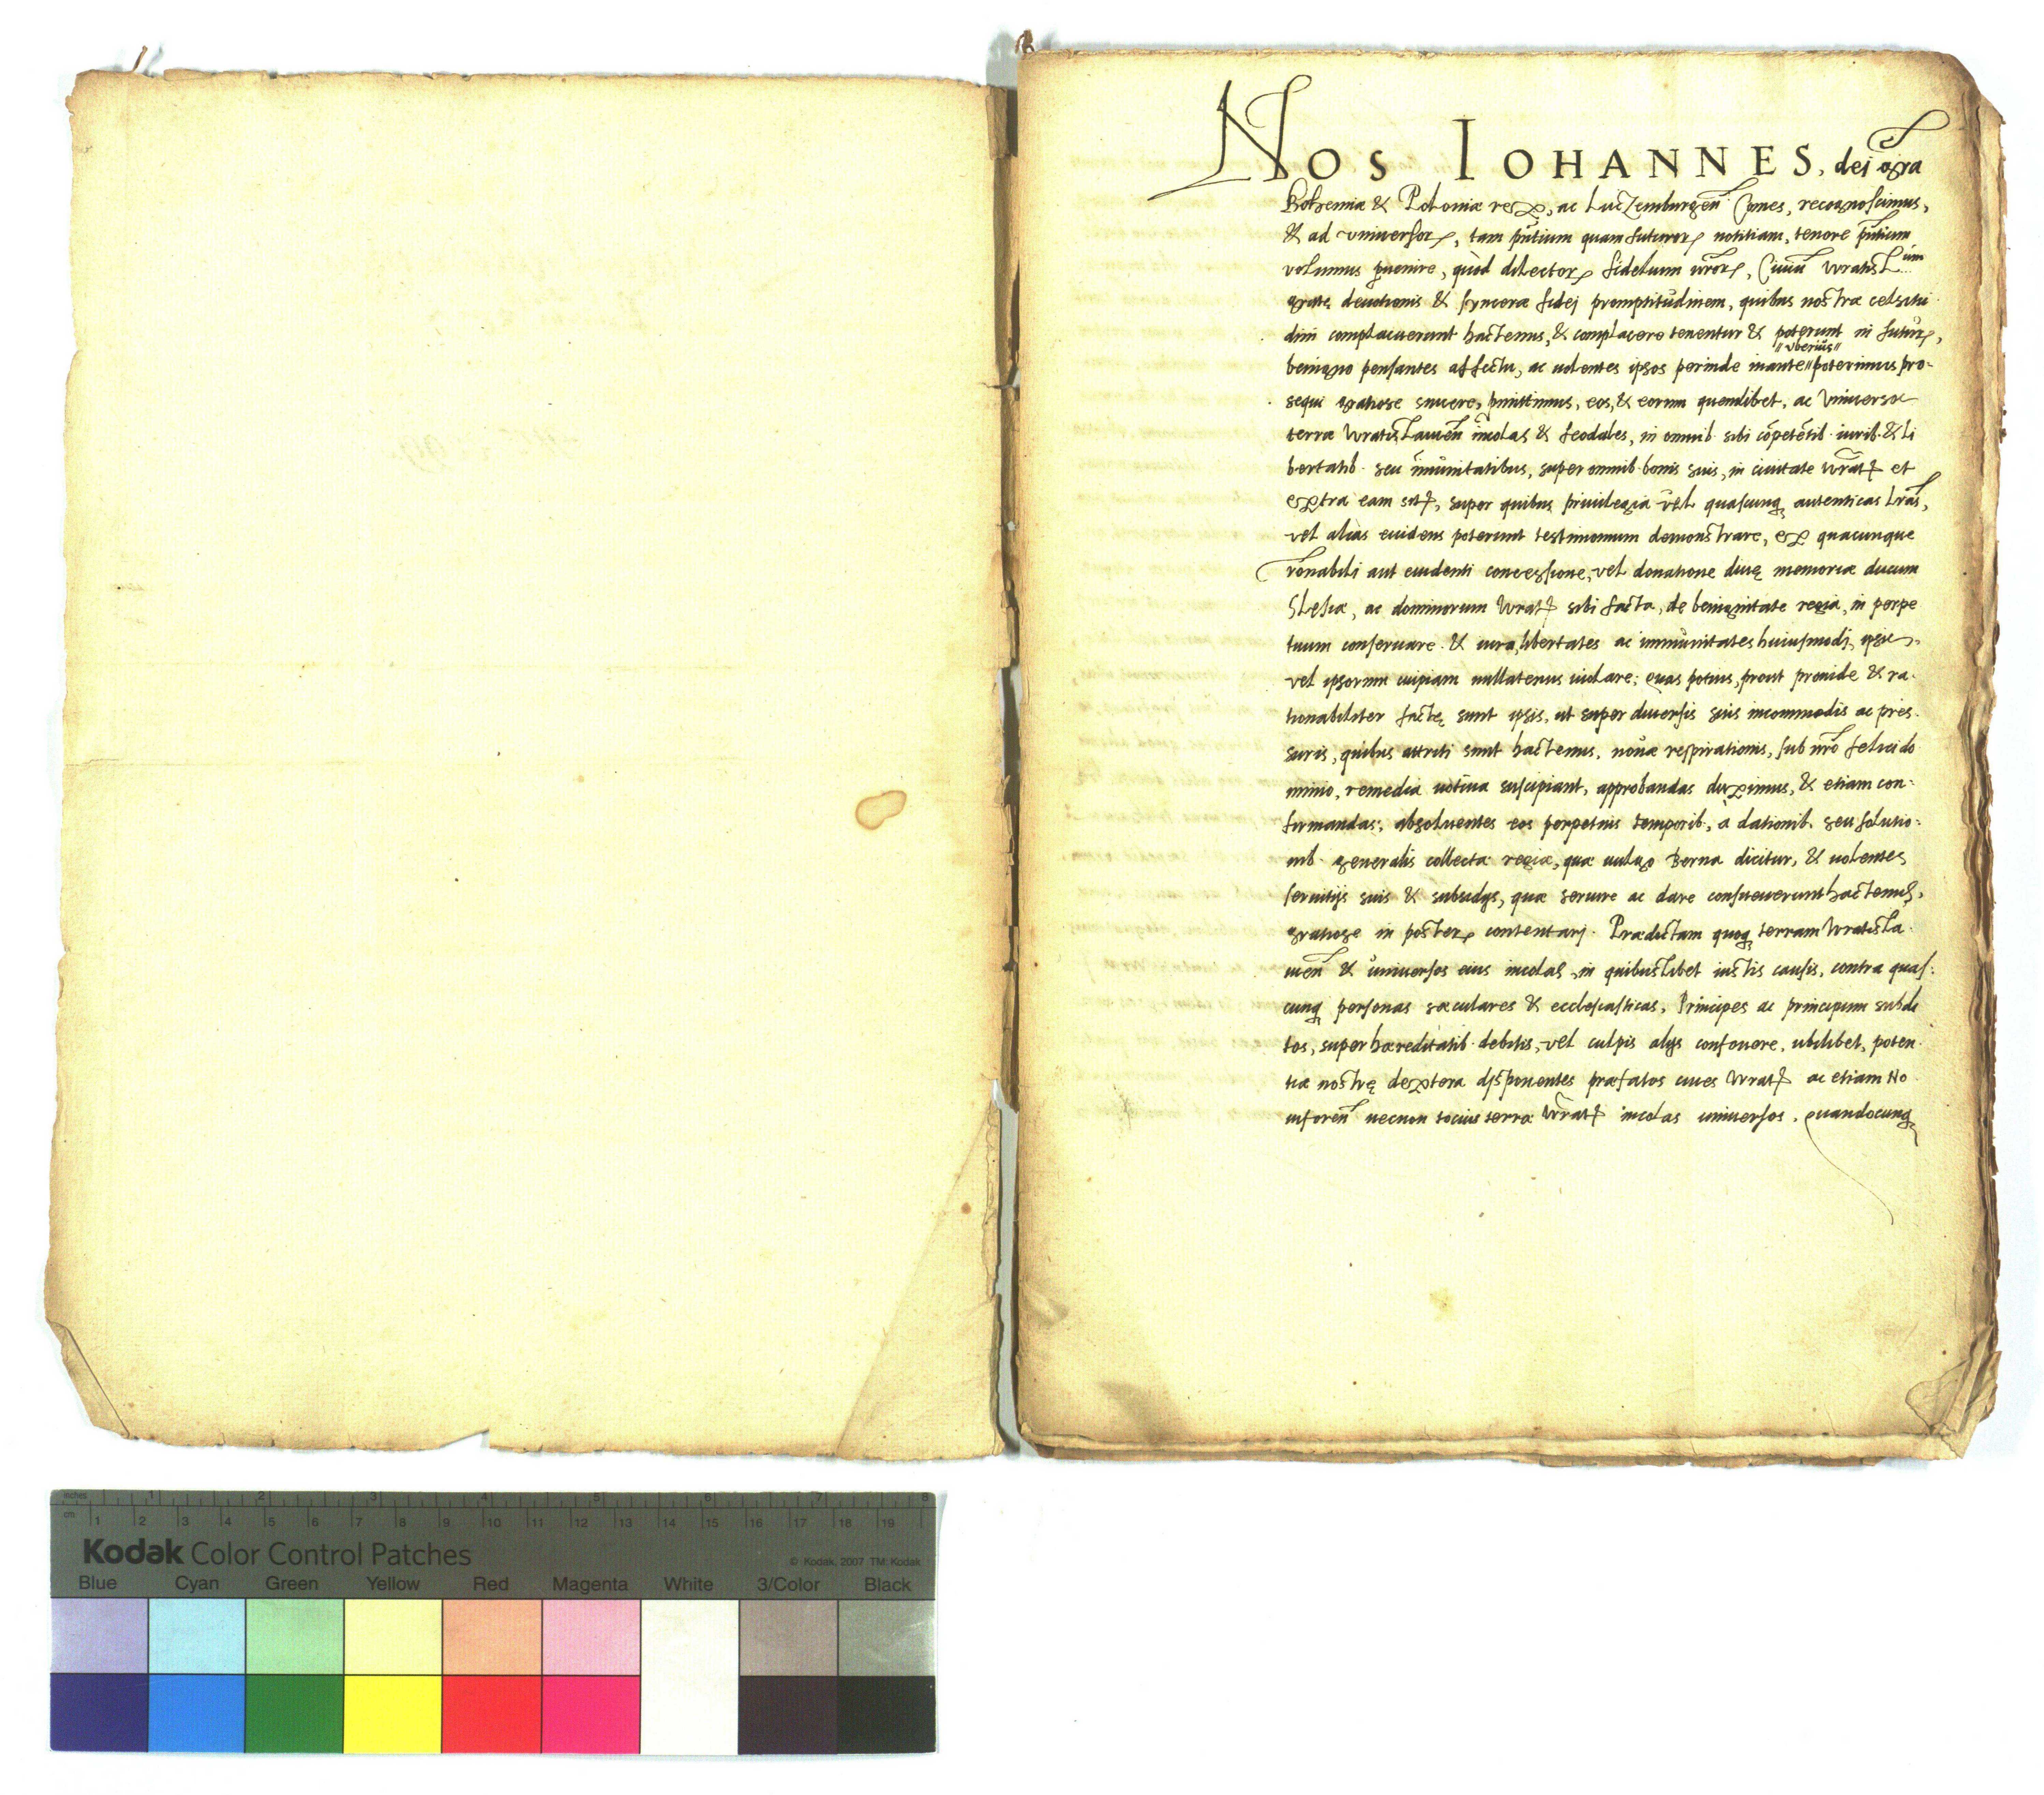 NOS IOHANNES, dei gra
Bohemiæ & Poloniæ rex, ac Luczemburgen Comes, recognoscimus,
& ad vniuersor, tam pntium quam futuror notitiam, tenore pntium
volumus puenire, quòd dilector fidelium nror, Ciuiu Wratisl
gratę deuotionis & synceræ fidej promptitudinem, quibus nostræ celsitu
dini complacuerunt hactenus, & complacere tenentur & poterunt in futur,
"vberius"
benigno pensantes affectu, ac uolentes ipsos perinde inante "poterimus pro-
sequi gratiose sincere, pmittimus, eos, & eorum quemlibet, ac Vniuersæ
terræ Wratislauien incolas & feodales, in omnib sibi cõpetẽtib iurib. & li
bertatib seu imunitatibus, super omnib bonis suis, in ciuitate Wrat et
extra eam sit, super quibus priuilegia vel quascunq autenticas lras,
vel alias euidens poterunt testimonium demonstrare, ex quacunque
ronabili aut euidenti concessione, vel donatione diuę memoriæ ducum
Slesiæ, ac dominorum Wrat sibi facta, de benignitate regia, in perpe
tuum conseruare. & iura, libertates ac immunitates huiusmodj, ipsis
vel ipsorum cuipiam nullatenus uiolare; quas potius, prout prouide & ra
tionabiliter factę sunt ipsis, ut super diuersis suis incommodis ac pres
suris, quibus attriti sunt hactenus, nouæ respirationis, sub nro felici do
minio, remedia uotiua suscipiant, approbandas duximus, & etiam con-
firmandas; absoluentes eos perpetuis temporib, a dationib. seu solutio-
nib generalis collectæ regiæ, quæ uulgo Berna dicitur, & uolentes
seruitijs suis & subsidys, quæ seruire ac dare consueuerunt hactenus,
gratiose in poster contentarj. Prædictam quoq terram Wratisla
uien & uniuersos eius incolas, in quibuslibet iustis causis, contra quas-
cunq personas sæculares & ecclesiasticas, Principes ac principum subdi
tos, super hæreditatib debitis, vel culpis alys confouere, ubilibet, poten
tiæ nostrę dextera disponentes præfatos ciues Wrat ac etiam No
uiforen necnon tocius terræ Wrat incolas uniuersos, quandocunq
Kodak Color Control Patches
© Kodak, 2007 TM: Kodak
inches 1 2 3 4 5 6 7 8
cm 1 2 3 4 5 6 7 8 9 10 11 12 13 14 15 16 17 18 19
Blue Cyan Green Yellow Red Magenta White 3/Color Black